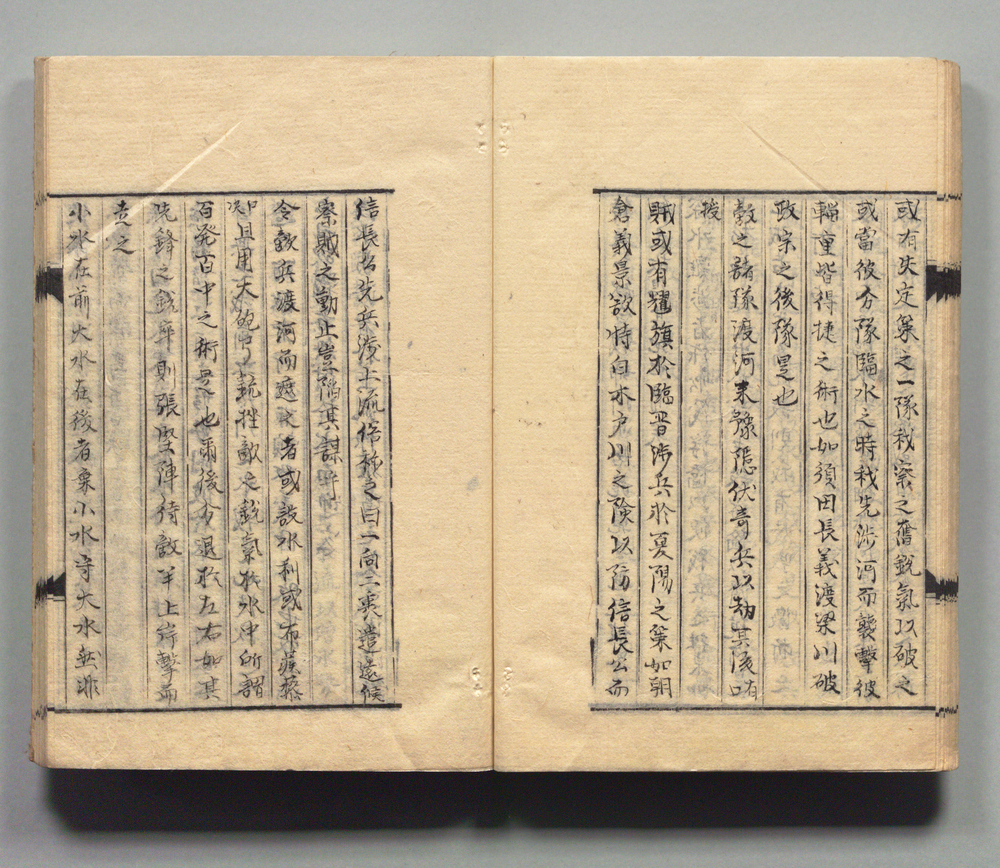 或有失定策之一隊我察之奮鋭氣以破之
或當彼分隊臨水之時我先渉河而襲擊彼
輜重皆得捷之術也如須田長義渡梁川破
政宗之後隊是也
敵之諸隊渡河来豫隱伏奇兵以劫其後
賊或有耀旗於臨晋渉兵於夏陽之策如朝
倉義景欲恃白木戸川之険以防信長公而
信長公先兵渡上流信 之曰一向二裏遣遠候
察賊之動止豈陥其謀
令敵兵渡河而遮 者或設水利或布蒺藜
且用大 敵之鋭氣於水中所謂
百発百中之術是也爾後分退於左右如其
先鋒之 則張堅陣待敵半上岸擊而
走之
小水在前大水在後者棄小水守大水無非